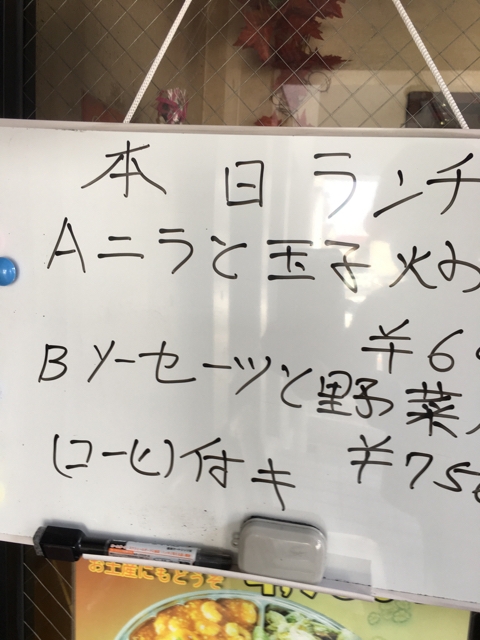 本日ランチ
Aニラと玉子火お
¥6
Bソーセーツと野菜
¥75
(コーヒ)付キ
お土産にもどうぞ